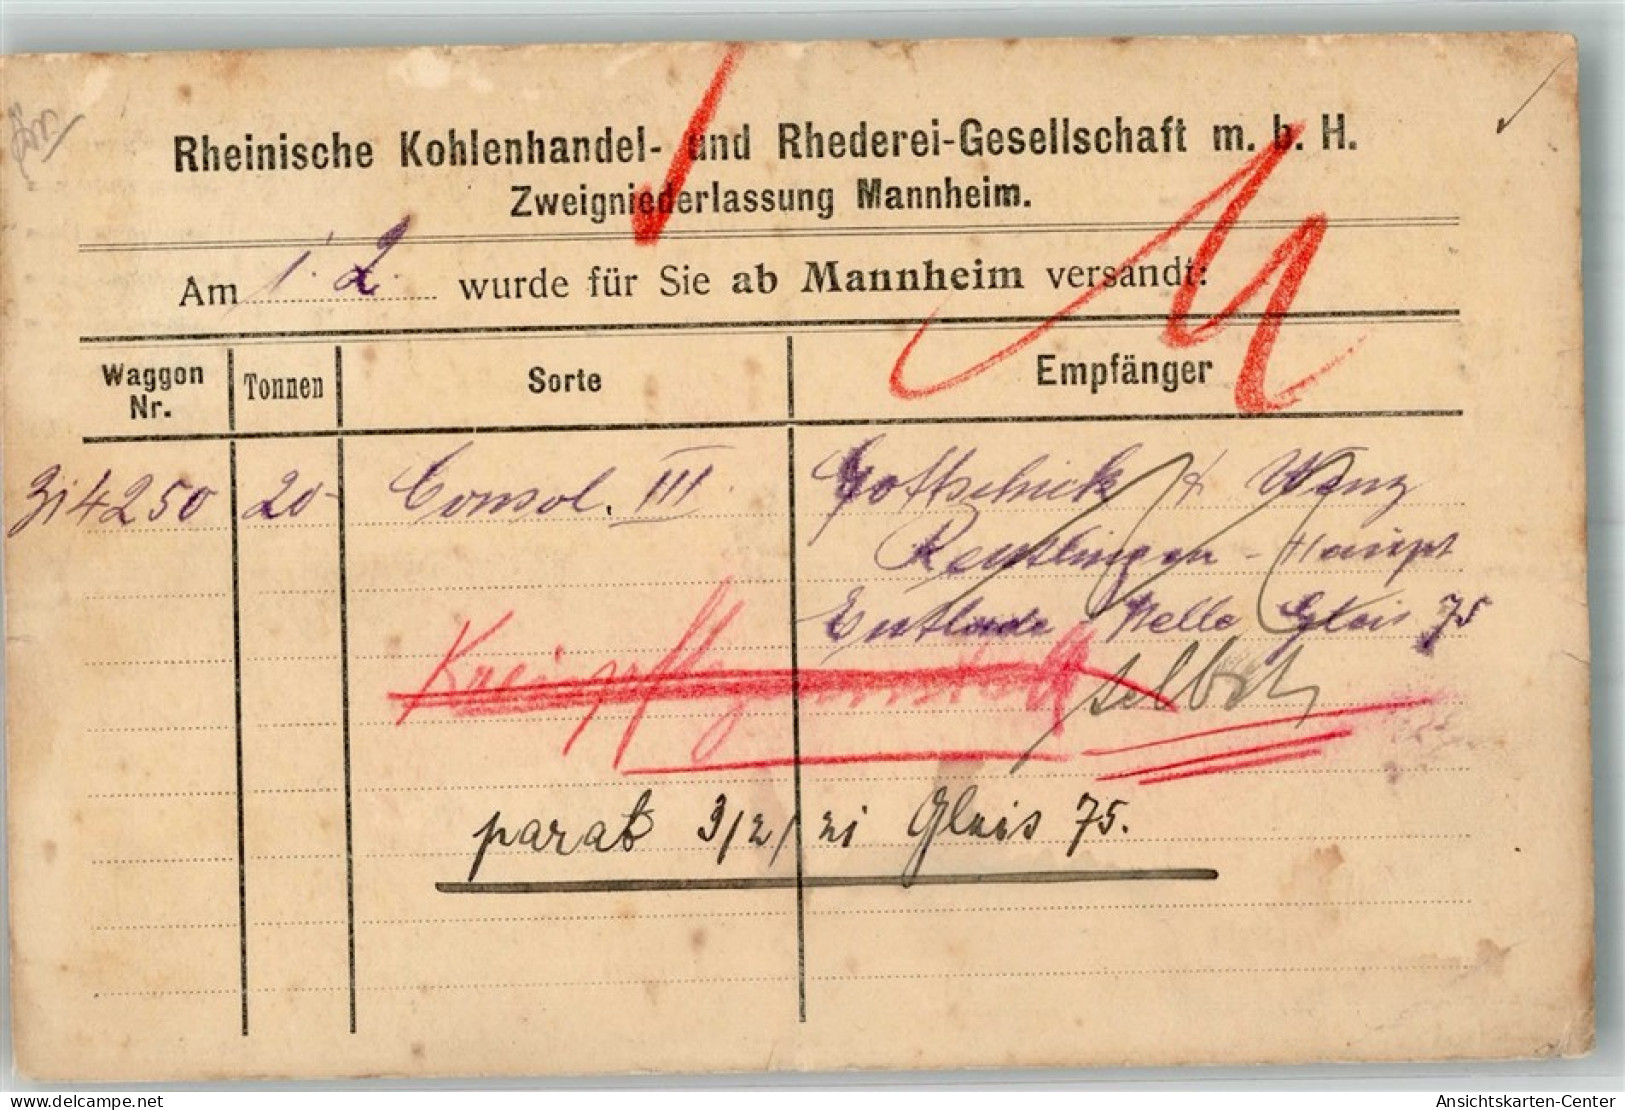 Rheinische Kohlenhandel- und Rhederei-Gesellschaft m. b. H.
Zweigniederlassung Mannheim.
Am 1. 2. wurde für Sie ab Mannheim versandt:
Waggon Nr. Tonnen Sorte Empfänger
14250 20- Consol. III Gottschick & Wenz
Reutlingen - Haupt
Entlade Gleis 75
selbst
parat 3/2/21 Gleis 75.
Ansichtskarten-Center